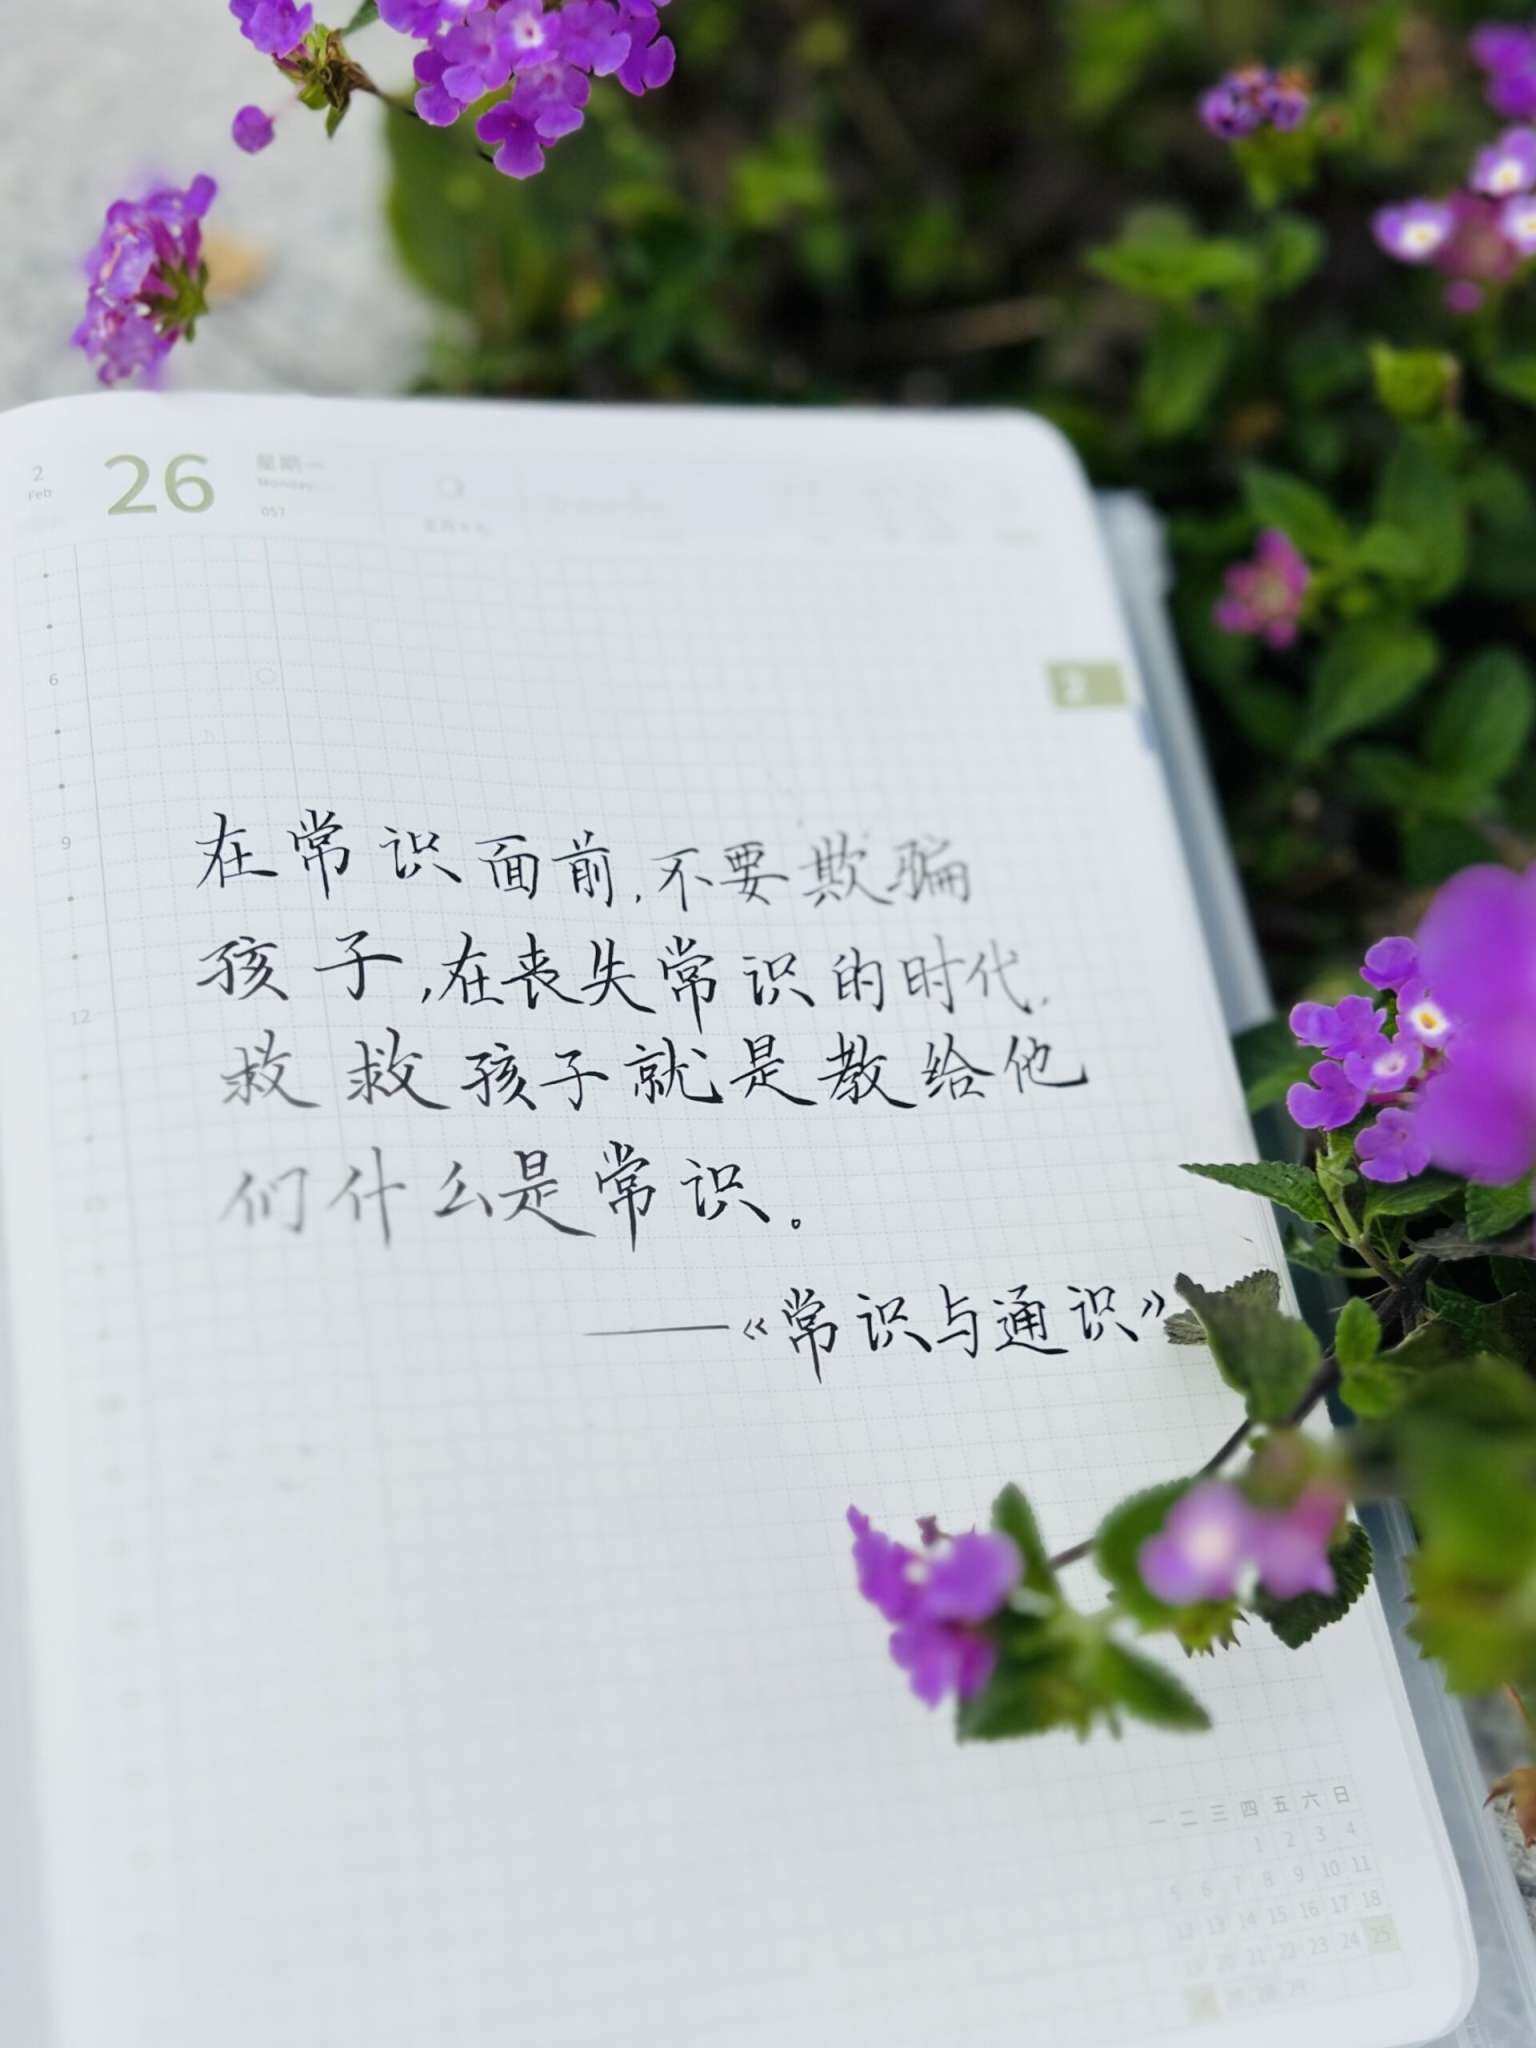 2
Feb
26
星期一
Monday
057
2
6
9
12
在常识面前,不要欺骗
孩子,在丧失常识的时代,
救救孩子就是教给他
们什么是常识。
——《常识与通识》
一 二 三 四 五 六 日
1 2 3 4
5 6 7 8 9 10 11
12 13 14 15 16 17 18
19 20 21 22 23 24 25